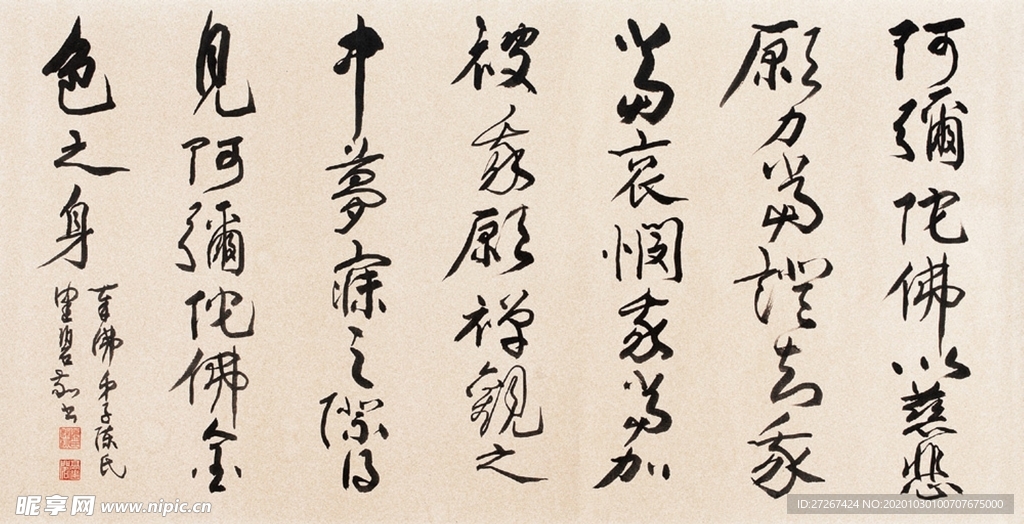 阿彌陀佛以慈悲
願力當證知我
當哀憫我當加
被我願禪觀之
中夢寐之際得
見阿彌陀佛金
色之身
奉佛弟子陳氏
碧敬書
昵享网 www.nipic.cn
ID:27267424 NO:20201030100707675000